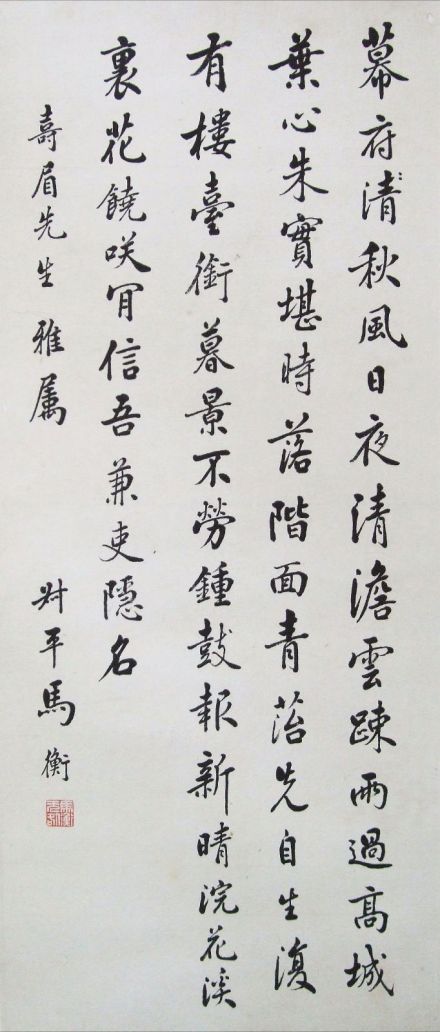 幕府清秋風日夜清澹雲踈雨過高城
葉心朱實堪時落階面青菭先自生復
有樓臺銜暮景不勞鍾鼓報新晴浣花溪
裏花饒咲肎信吾兼吏隱名
壽眉先生雅属
尗平馬衡